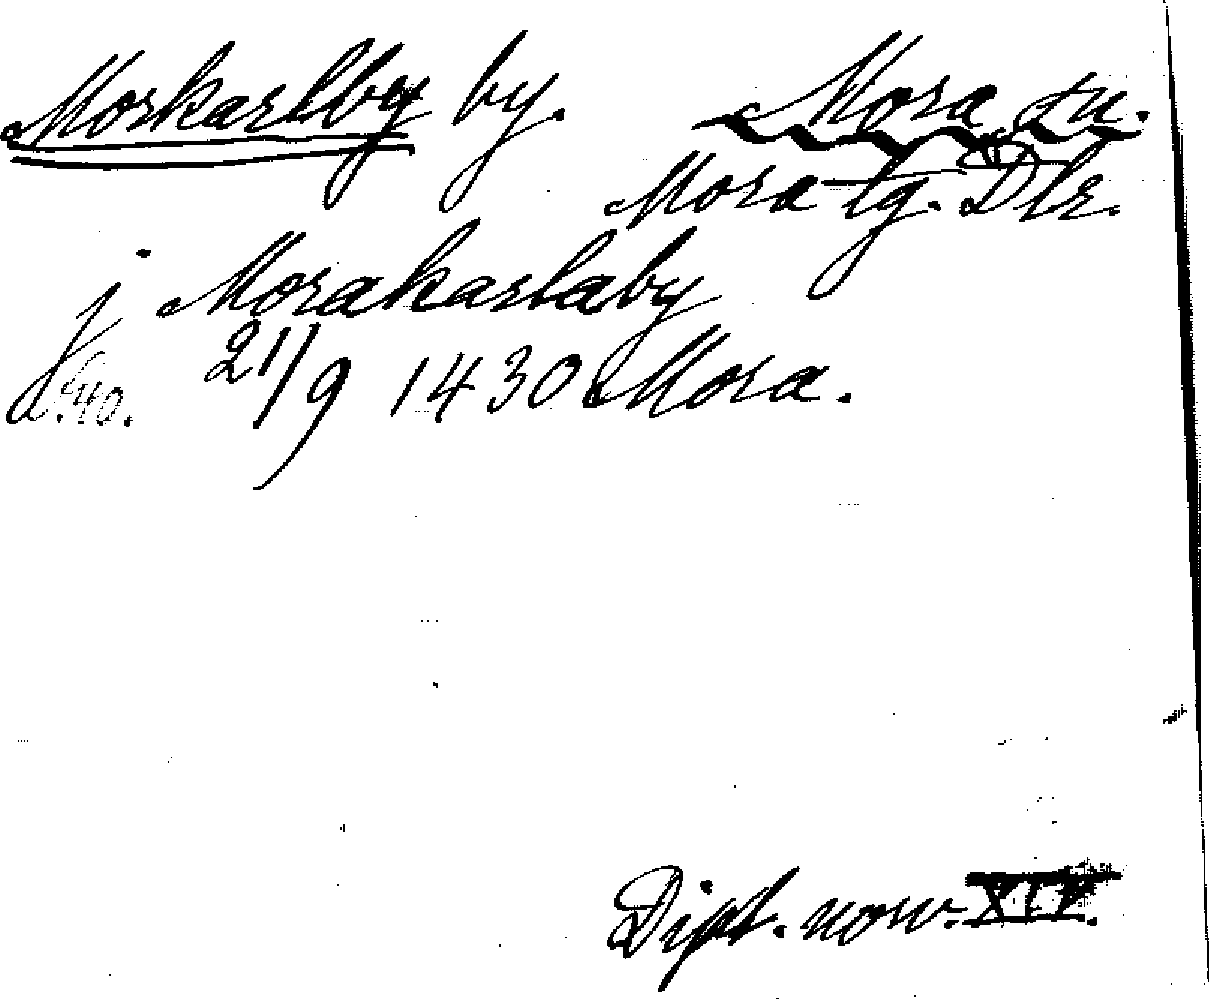 Morkarlby by. Mora sn.
Mora tg. Dlr.
j Morakarlaby
21/9 1430 Mora.
Dipl. norv. XIV.